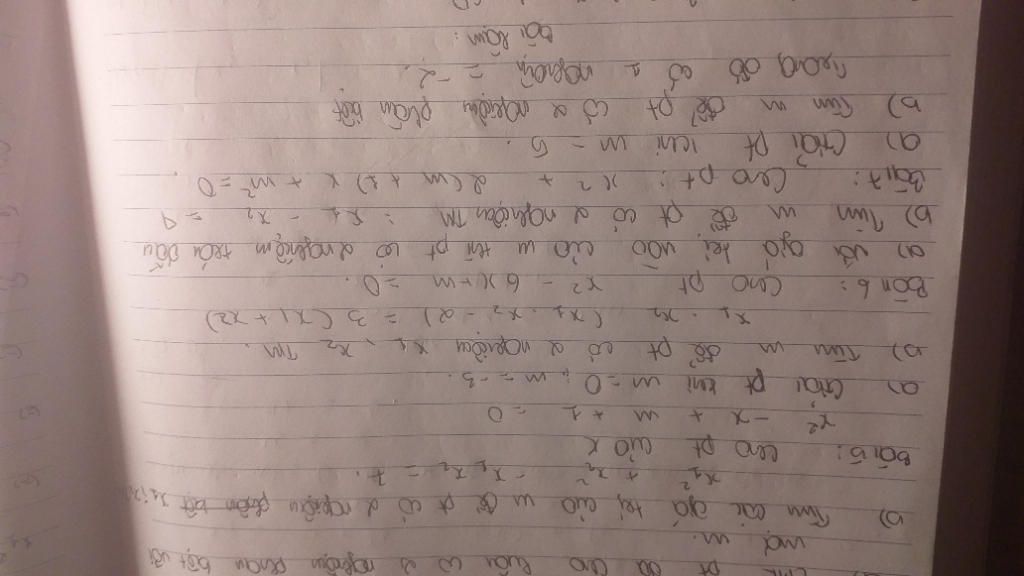 pt đã cho luôn có 2 nghiệm phân biệt với
mọi m.
b) Tìm các giá trị của m để pt có 2 nghiệm
x₁² + x₂² - x₁x₂ = 7.
Bài 5: Cho pt của x
x² - x + m + 1 = 0
a) Giải pt khi m = 0 ; m = -3.
b) Tìm m để pt có 2 nghiệm x₁, x₂ TM
x₁ . x₂ (x₁ . x₂ - 2) = 3 (x₁ + x₂)
Bài 6: Cho pt x² - 6x + m = 0.
a) Với giá trị nào của m thì pt có 2 nghiệm trái dấu
b) Tìm m để pt có 2 nghiệm TM : x₁ - x₂ = 4
Bài 7: Cho pt : x² + 2(m + 1) x + m² = 0.
a) Giải pt khi m = 5.
b) Tìm m để pt có 2 nghiệm phân biệt
trong đó có 1 nghiệm = -2.
Bài làm: